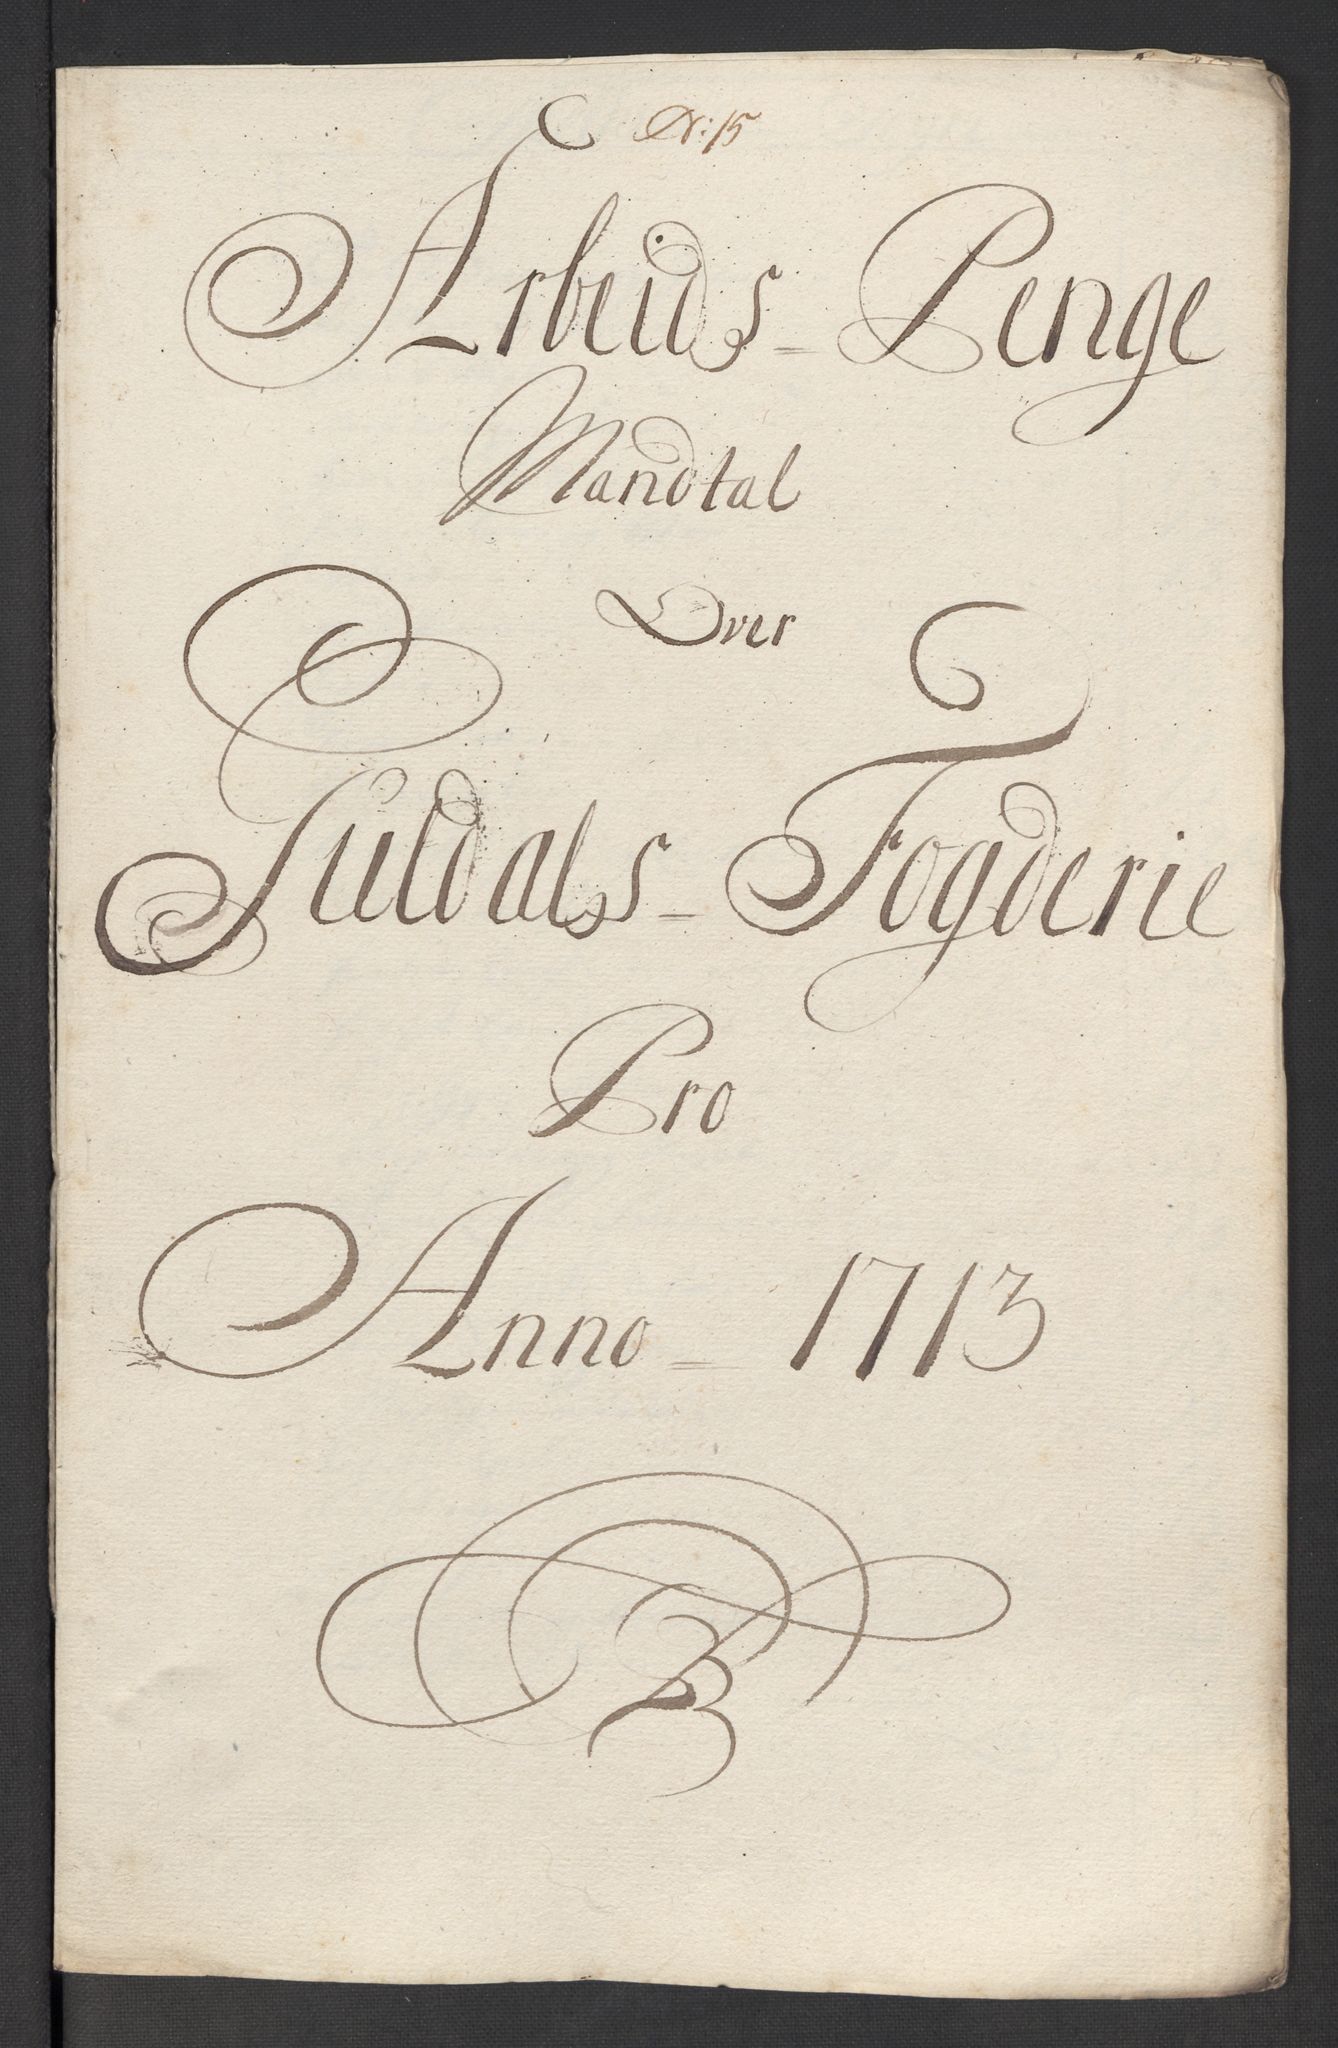 N: 15
Arbeids-Penge
Mandtal
Over
Guldals-Fogderie
Pro
Anno-1713